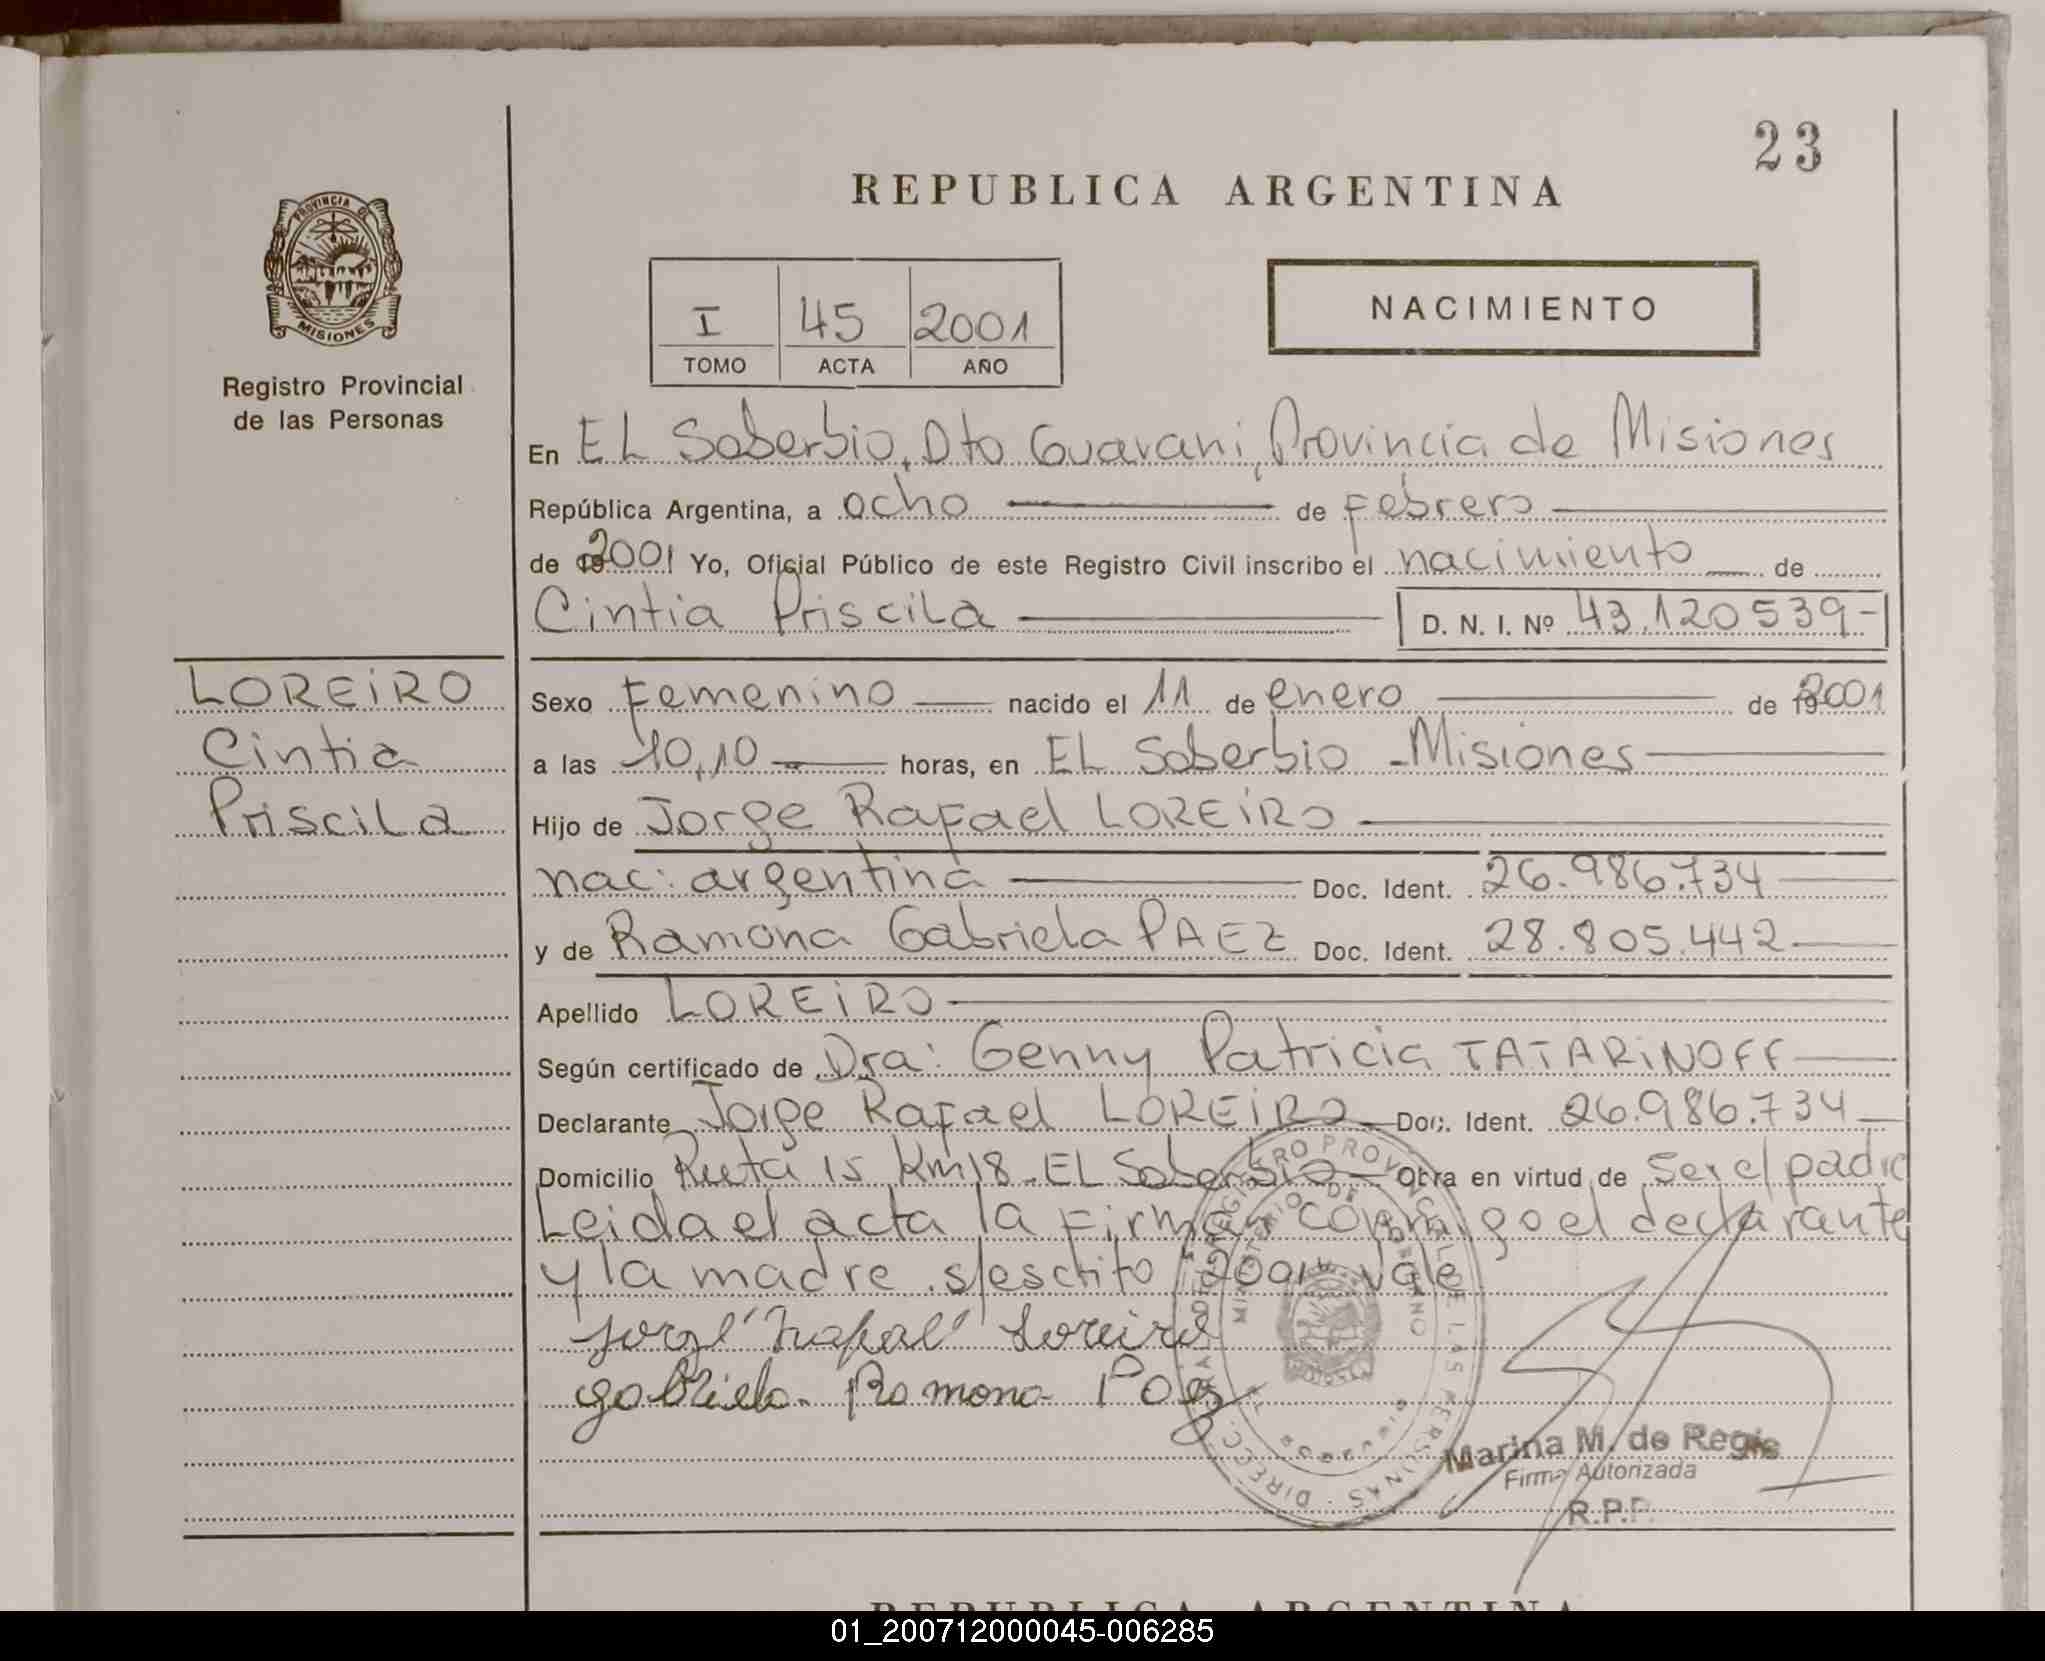 23
REPUBLICA ARGENTINA
PROVINCIA DE
MISIONES
Registro Provincial
de las Personas
I 45 2001
TOMO ACTA AÑO
NACIMIENTO
En EL Soberbio, Dto Guarani, Provincia de Misiones
República Argentina, a ocho de Febrero
de 2001 Yo, Oficial Público de este Registro Civil inscribo el nacimiento de
Cintia Priscila D. N. I. Nº 43.120539-
LOREIRO
Cintia
Priscila
Sexo Femenino nacido el 11 de enero de 2001
a las 10,10 horas, en EL Soberbio - Misiones
Hijo de Jorge Rafael LOREIRO
nac: argentina Doc. Ident. 26.986.734
y de Ramona Gabriela PAEZ Doc. Ident. 28.805.442
Apellido LOREIRO
Según certificado de Dra: Genny Patricia TATARINOFF
Declarante Jorge Rafael LOREIRO Doc. Ident. 26.986.734
Domicilio Ruta 15 Km18 - EL Soberbio Obra en virtud de ser el padre
Leida el acta la Firman conmigo el declarante
y la madre. s/escrito "2001" vale
Jorge Rafael Loreiro
gabriela Ramona Paez
DIRECC. GRAL. DEL REGISTRO PROVINCIAL DE LAS PERSONAS
MINISTERIO DE GOBIERNO
Marina M. de Regis
Firma Autorizada
R.P.P.
REPUBLICA ARGENTINA
01_200712000045-006285